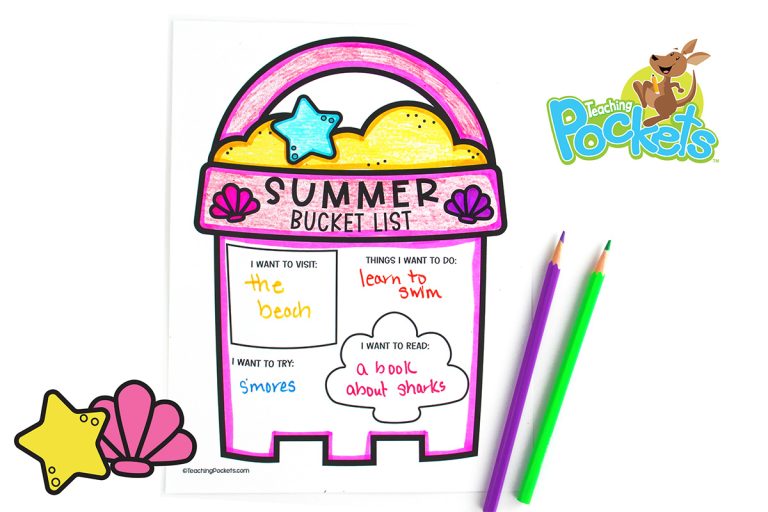 Teaching
Pockets™
SUMMER
BUCKET LIST
I WANT TO VISIT:
the
beach
THINGS I WANT TO DO:
learn to
swim
I WANT TO TRY:
s'mores
I WANT TO READ:
a book
about sharks
©TeachingPockets.com